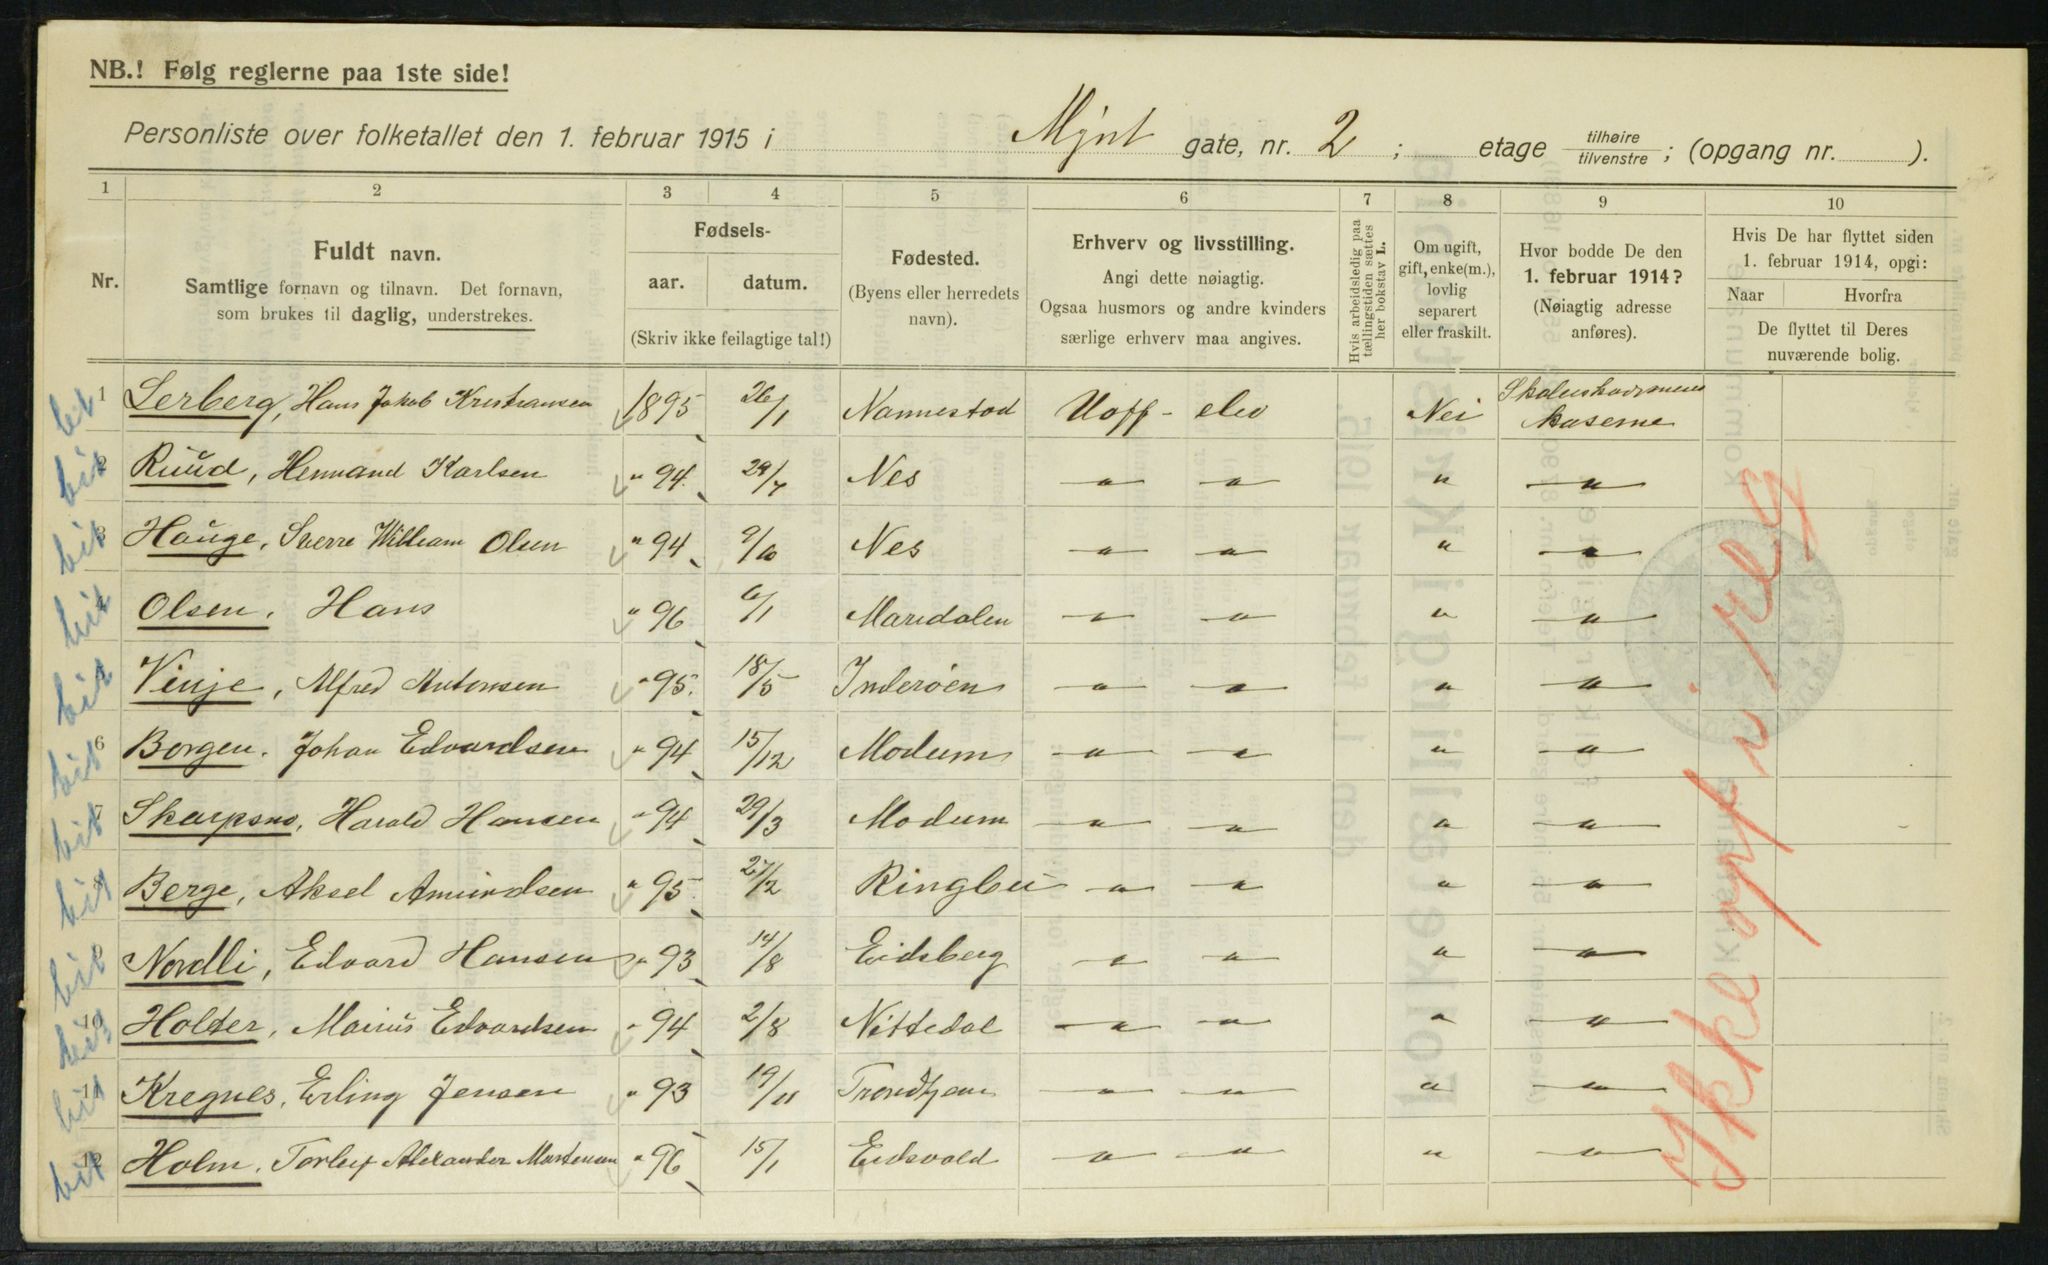 NB.! Følg reglerne paa 1ste side!
Personliste over folketallet den 1. februar 1915 i Mynt gate, nr. 2 ; etage tilhøire tilvenstre ; (opgang nr. ).
1 2 3 4 5 6 7 8 9 10
Nr.
Fuldt navn.
Samtlige fornavn og tilnavn. Det fornavn,
som brukes til daglig, understrekes.
Fødsels-
aar. datum.
(Skriv ikke feilagtige tal!)
Fødested.
(Byens eller herredets
navn).
Erhverv og livsstilling.
Angi dette nøiagtig.
Ogsaa husmors og andre kvinders
særlige erhverv maa angives.
Hvis arbeidsledig paa
tællingstiden sættes
her bokstav L.
Om ugift,
gift, enke(m.),
lovlig
separert
eller fraskilt.
Hvor bodde De den
1. februar 1914?
(Nøiagtig adresse
anføres).
Hvis De har flyttet siden
1. februar 1914, opgi:
Naar Hvorfra
De flyttet til Deres
nuværende bolig.
1 Lerberg, Hans Jakob Kristiansen 1895 26/1 Nannestad Uoff - elev Nei kaserne
2 Ruud, Hermand Karlsen " 94 29/7 Nes " " " "
3 Hauge, Sverre William Olsen " 94 9/10 Nes " " " "
4 Olsen, Hans " 96 6/1 Maridalen " " " "
Vinje, Alfred Antonsen " 95 18/5 Inderøen " " " "
6 Borgen, Johan Edvardsen " 94 15/12 Modum " " " "
7 Skarpsno, Harald Hansen " 94 29/3 Modum " " " "
8 Berge, Aksel Amundsen " 95 27/2 Ringbu " " " "
9 Nordli, Edvard Hansen " 93 14/8 Eidsberg " " " "
10 Holter, Marius Edvardsen " 94 2/8 Nittedal " " " "
11 Kregnes, Erling Jensen " 93 19/11 Trondhjem " " " "
12 Holm, Torleif Alexander Martensen " 96 15/1 Eidsvold " " " "
Ikke opf i reg